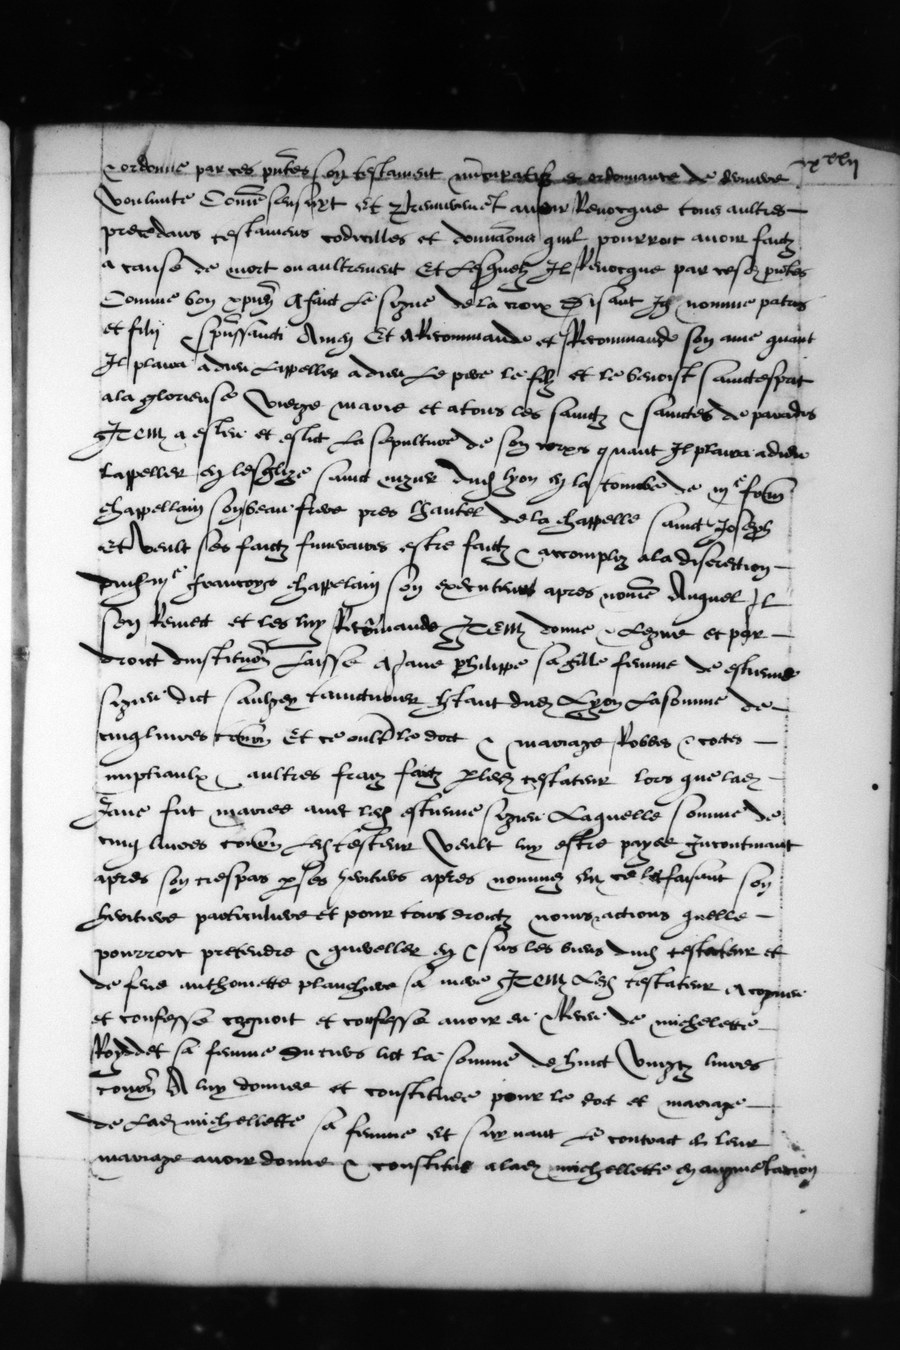 & ordonne par ces pntes son testament nuncupatif et ordonnance de derniere
voulunte Comme sensuyt Et premierement a Revocque tous aultres
precedans testamens codicilles et donnacions quil pourroit avoir faitz
a cause de mort ou aultrement Et Lesquelz Il Revocque par cesd pntes
Comme bon xpien A faict Le signe de la croix Disant In nomine patris
et filij & spussancti Amen Et A Recommande et Recommande son ame quant
Il plaira a dieu Lappeller a dieu Le pere le filz et le benoist sainct esprit
a la glorieuse vierge marie et a tous les sainctz & sainctes de paradis
Item a esleu et eslit La sepulture de son corps quant Il plaira a dieu
Lappeller en lesglize sainct nizier dud lyon en la tombe de me
chappellain son beau frere pres lhautel de la chappelle sainct Joseph
Et veult ses faictz funeraires estre faictz & accompliz a la discretion
dud me francoys chappelain son executeur apres nomme Auquel Il
sen Remect et les luy Recommande Item donne & Legue et par
droit dinstitution Laisse a Jane philippe sa fille femme de estienne
dict taincturier hitant dud Lyon La somme de
cinq livres tourn Et ce oultre le dot & mariage Robbes & cottes
nuptiaulx & aultres fraiz faictz p led testateur lors que lad
Jane fut mariee avec led estienne Laquelle somme de
cinq livres tourn Led testateur veult luy estre payee Incontinant
apres son trespas p ses heritiers apres nommez en ce la faisant son
heritiere particuliere Et pour tous droictz noms actions quelle
pourroit pretendre & quereller en & sus les biens dud testateur et
de feue anthoinette planchiere sa mere Item Led testateur A cogneu
et confesse cognoit et confesse avoir eu & Receu de michelette
sa femme du tiers lict la somme de huict vingtz livres
tourn A luy donnee et constituee pour le dot et mariage
de Lad michellette sa femme Et suyvant Le contract de leur
mariage avoir donne & constitue a lad michellette en augmentacion